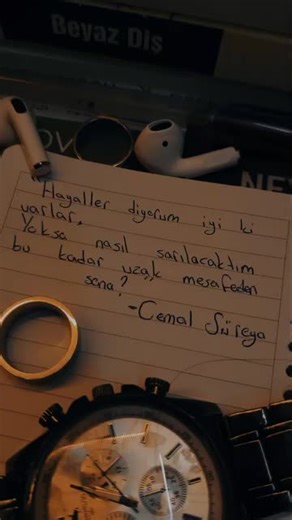 Beyaz Diş
NE
"Hayaller diyorum iyi ki
varlar,
Yoksa nasıl sarılacaktım
bu kadar uzak mesafeden
sana?
-Cemal Süreya